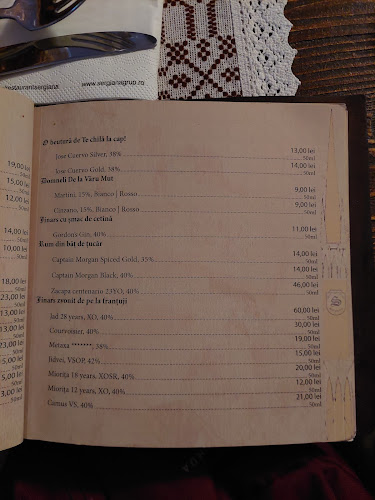 restaurantsergiana
www.sergianagrup.ro
19,00 lei
50ml
15,00 lei
50ml
12,00 lei
50ml
14,00 lei
50ml
10,00 lei
50ml
18,00 lei
50ml
23,00 lei
50ml
13,00 lei
50ml
13,00 lei
50ml
23,00 lei
50ml
5,00 lei
50ml
3,00 lei
50ml
5,00 lei
50ml
O beutură de Te chilă la cap!
Jose Cuervo Silver, 38% 13,00 lei
50ml
Jose Cuervo Gold, 38% 14,00 lei
50ml
Domneli De la Văru Mut
Martini, 15%, Bianco | Rosso 9,00 lei
50ml
Cinzano, 15%, Bianco | Rosso 9,00 lei
50ml
Jinars cu ymac de cetină
Gordon's Gin, 40% 11,00 lei
50ml
Rom din băț de țucăr
Captain Morgan Spiced Gold, 35% 14,00 lei
50ml
Captain Morgan Black, 40% 14,00 lei
50ml
Zacapa centenario 23YO, 40% 46,00 lei
50ml
Jinars zvonit de pe la franțuji
Jad 28 years, XO, 40% 60,00 lei
50ml
Courvoisier, 40% 30,00 lei
50ml
Metaxa *******, 38% 19,00 lei
50ml
Jidvei, VSOP, 42% 15,00 lei
50ml
Miorița 18 years, XOSR, 40% 20,00 lei
50ml
Miorița 12 years, XO, 40% 12,00 lei
50ml
Cornus VS, 40% 21,00 lei
50ml